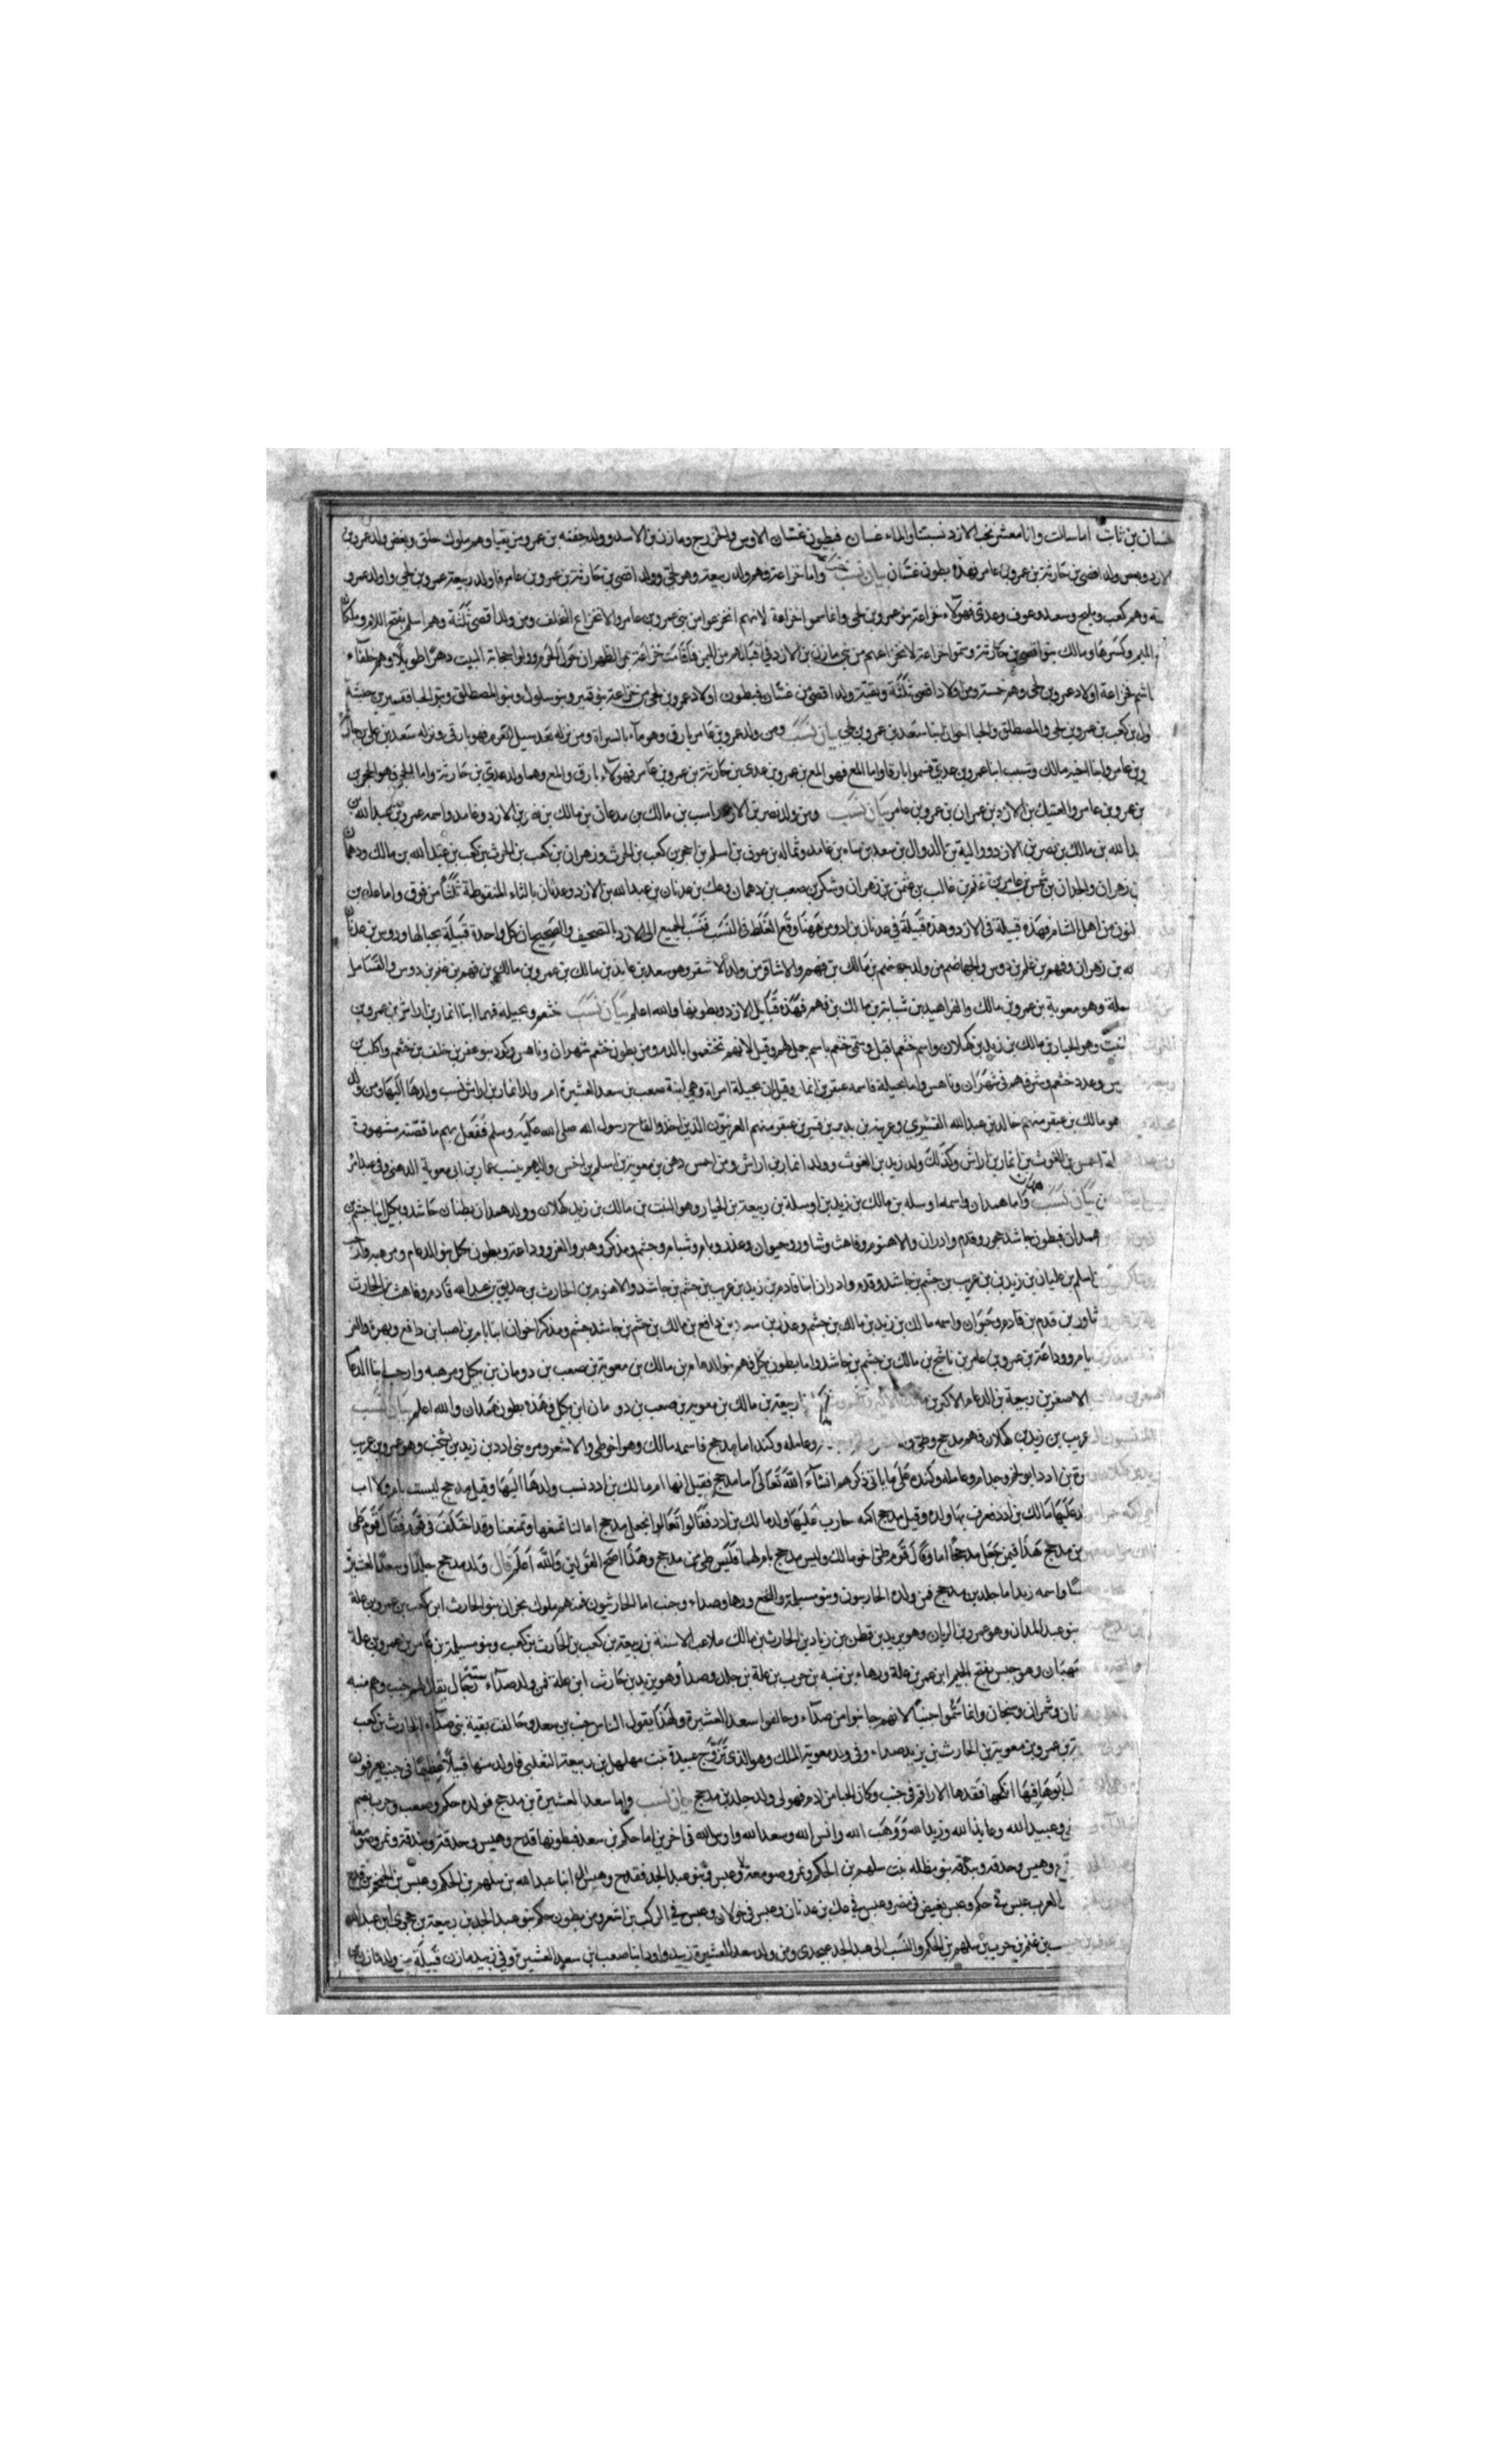 حسان بن ثابت اما سالت وانا معشر نجب الازد نسبتنا والماء غسان فبطون غسان الاوس والخزرج ومازن بن الاسد وولد جفنه بن عمرو مزيقيا وهم ملوك جلق وبعض ولد عمرو بن
ولد افصى بن حارثة بن عمرو بن عامر فهذه بطون غسان بيان نسب واما خزاعة وهم ولد ربيعة وهو لحي وولد افصى بن حارثة بن عمرو بن عامر فاولد ربيعة عمرو بن لحي واولد عمرو
وهم كعب ومليح وسعد وعوف وعدي فهولاء خزاعة بنو عمرو بن لحي وانما سموا خزاعة لانهم انخزعوا من بني عمرو بن عامر والانخزاع التخلف ومن ولد افصى ثلثة وهم اسلم بفتح اللام وملكان
وكسرها ومالك بنو افصى بن حارثة وسموا خزاعة لانخزاعهم من بني مازن بن الازد في اقبالهم من اليمن فاقامت خزاعة بمر الظهران حول الحرم وولوا حجابة البيت دهرا طويلا وهم حلفاء
خزاعة اولاد عمرو بن لحي وهم خمسة ومن اولاد افصى ثلثة وبقية ولد افصى من غسان فبطون اولاد عمرو بن لحي من خزاعة بنو قمير وبنو سلول وبنو المصطلق وبنو الحيا فقمير بن حبشة
بن كعب بن عمرو بن لحي والمصطلق والحيا اخوان ابنا سعد بن عمرو بن لحي بيان نسب ومن ولد عمرو بن عامر بارق وهو ماء بالسراة ومن نزله بعد سيل العرم فهو بارقي ونزله سعد بن عدي بن حارثة
بن عامر وابنا اخيه مالك وشبيب ابنا عمرو بن عدي فسموا بارقا واما المع فهو المع بن عمرو بن عدي بن حارثة بن عمرو بن عامر فهولاء بارق والمع وهما ولد عدي بن حارثة واما الحجر فهو الحجر بن
بن عمرو بن عامر والعتيك بن الازد بن عمران بن عمرو بن عامر بيان نسب ومن ولد نصر بن الازد راسب بن مالك بن مدعان بن مالك بن نصر بن الازد وغامد واسمه عمرو بن عبد الله بن
الله بن مالك بن نصر بن الازد ووالبة بن الدوال بن سعد مناه بن غامد وثماله بن عوف بن اسلم بن احجن بن كعب بن الحرث وزهران بن كعب بن الحرث بن كعب بن عبد الله بن مالك
زهران والحدان بن شمس بن عمرو بن غنم بن غالب بن عثمن بن زهران ويشكر بن صعب بن دهمان وعك بن عدنان بن عبد الله بن الازد وعدثان بالثاء المنقوطة ثلثا من فوق واما عك بن
من اهل الشام فهذه قبيلة في الازد وهذه قبيلة في عدنان بن ادد ومن ههنا وقع الغلط في النسب فنسب الجميع الى الازد بالتصحيف والصحيح ان كل واحدة قبيلة بحيالها ودوس بن عدثان
بن زهران وفهم بن غنم بن دوس والجهاضم من ولد جهضم بن مالك بن فهم والاشاقر من ولد الاشقر وهو سعد بن عايد بن مالك بن عمرو بن مالك بن فهم بن غنم بن دوس والقسامل
وهو معوية بن عمرو بن مالك والفراهيد بن شبابة بن مالك بن فهم فهذه قبايل الازد وبطونها والله اعلم بيان نسب خثعم وبجيله فهما ابنا انمار بن اراش بن عمرو بن
وهو الخيار بن مالك بن زيد بن كهلان واسم خثعم اقبل وسمي خثعم باسم جمل لهم وقيل لانهم تخثعموا بالدم ومن بطون خثعم شهران وناهس وكود بنو عفرس بن خلف بن خثعم واكلب بن
وعدد خثعم وشرفهم في شهران وناهس واما بجيلة فاسمه عبقر بن انمار وقيل ان بجيلة امراة وهي ابنة صعب بن سعد العشيرة ام ولد انمار بن اراش نسب ولدها اليها ومن ولد
هو مالك بن عبقر منهم خالد بن عبد الله القسري وعرينه بن نذير بن قسر بن عبقر منهم العرنيون الذين اخذوا لقاح رسول الله صلى الله عليه وسلم ففعل بهم ما قصته مشهورة
احمس بن الغوث بن انمار بن اراش وكذلك ولد زيد بن الغوث وولد انمار بن اراش ومن احمس دهن بن معوية بن اسلم بن احمس واليهم ينسب عمار بن ابي معوية الدهني
بيان نسب واما همدان واسمه اوسله بن مالك بن زيد بن اوسلة بن ربيعة بن الخيار وهو النبت بن مالك بن زيد بن كهلان وولد همدان بطنان حاشد وبكيل ابنا جشم بن
همدان فبطون حاشد حجور وقدم وادران والاهنوم وفاهث وشاور وحيوان وعذر ويام وشبام وجشم ومذكر وهبر والغز ووداعة وبطون بكيل بنو الدعام ومرهبة وارحب
اسلم بن عليان بن زيد بن عريب بن جشم بن حاشد وقدم وادران ابنا قادم بن زيد بن عريب بن جشم بن حاشد والاهنوم بن الحارث بن حديق بن عبد الله بن قادم وفاهث بن الحارث
شاور بن قدم بن قادم وحيوان واسمه مالك بن زيد بن مالك بن جشم وعذر بن سعد بن دافع بن مالك بن جشم بن حاشد وجشم ومذكر اخوان ابنا يام بن اصبا بن دافع وهبرة والغز
يام ووداعة بن عمرو بن عامر بن ناشج بن مالك بن جشم بن حاشد واما بطون بكيل فهم بنو الدعام بن مالك بن معوية بن صعب بن دومان بن بكيل ومرهبه وارحب ابنا الدعام
الاصغر بن ربيعة بن الدعام الاكبر بن ربيعة بن مالك بن معوية بن صعب بن دومان ابن بكيل فهذه بطون همدان والله اعلم بيان نسب
عريب بن زيد بن كهلان فهم مذحج وطي وعامله وكنده اما مذحج فاسمه مالك وهو اخو طي والاشعر ومره بني ادد بن زيد بن يشجب وهو عمرو بن عريب
بن ادد ابو لخم وجذام وعامله وكنده على ما ياتي ذكرهم انشآء الله تعالى اما مذحج فقيل انها ام مالك بن ادد نسب ولدها اليها وقيل مذحج ليست بام ولا اب
عليها مالك بن ادد فعرف بها ولده وقيل مذحج اكمه حارب عليها ولد مالك بن ادد فقالوا تعالوا نجعل مذحج اما لنا نمنعها وتمنعنا وقد اختلف في فقال قوم طي
من مذحج هذا فيمن جعل مذحجا اما وقال قوم طي اخو مالك وليس مذحج بام لهما فليس طي من مذحج وهذا اصح القولين والله اعلم قال ولد مذحج جلدا وسعد العشيرة
واسمه زيد اما جلد بن مذحج فمن ولده الحارثيون وبنو مسيلة والنخع ورها وصداء وجنب اما الحارثيون فمنهم ملوك نجران بنو الحارث ابن كعب بن عمرو بن علة
بنو عبد المدان وهو عمرو بن الريان وهو يزيد بن قطن بن زياد بن الحارث بن مالك ملاعب الاسنة بن ربيعة بن كعب بن الحارث بن كعب وبنو مسيلة بن عامر بن عمرو بن علة
وهو جسر بفتح الجيم ابن عمرو بن علة ورهاء بن منبه بن حرب بن علة بن جلد وصدأ وهو يزيد بن حارث ابن علة فمن ولد صداء ستة رجال يقال لهم جنب وهم منبه
وشمران وسنحان وانما سموا جنبا لانهم جانبوا من صداء وحالفوا سعد العشيرة ولهذا يقول الناس جنب بن سعد وحالفت بقية بني صداء الحارث بن كعب
بن عمرو بن معوية بن الحارث بن يزيد صداء وفي ولد معوية الملك وهو الذي تزوج عبيدة بنت مهلهل بن ربيعة التغلبي فاولد منها قبيلا عظيما في جنب يعرفون
ابوها فيها انكحها فقدها الاراقم في جنب وكان الحبا من ادم فهولى ولد جلد بن مذحج بيان نسب واما سعد العشيرة بن مذحج فولده حكم وصعب وحرب
وعبيد الله وعايذ الله وزيد الله ووهب الله وانس الله وسعد الله واوس الله في اخرين اما حكم بن سعد فبطونها قدح وهيس وحدقة وبندقة ونمر
وهيس وحدقه وبندقه بنو مظله بنت سلهم بن الحكم ونمر وصومعة وعبس في بنو عبد الجد فقدح وهيس ابنا عبد الله بن سلهم بن الحكم وعبس
العرب عبس في حكم وعبس بغيض في مضر وعبس في عك بن عدنان وعبس في خولان وعبس في الركب بن اشعر ومن بطون حكم بنو عبد الجد بن ربيعة بن حجري ابن عبد الله
بن غنم بن حرب بن سلهم بن الحكم والنسب الى عبد الجد عبجدي ومن ولد سعد العشيرة زبيد واود ابنا صعب بن سعد العشيرة وفي زبيد مازن قبيلة من ولد مازن